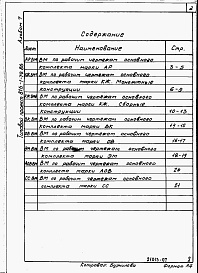 Альбом 7
2
Содержание
Лист
Наименование
Стр.
АР.ВМ
ВМ по рабочим чертежам основного
комплекта марки АР
3-5
ВМ по рабочим чертежам основного
комплекта марки КЖ. Монолитные
конструкции
6-9
ВМ по рабочим чертежам основного
комплекта марки КЖ. Сборные
конструкции
10-13
ВМ по рабочим чертежам основного
комплекта марки ВК
14-15
ВМ по рабочим чертежам основного
комплекта марки ОВ
16-17
ВМ по рабочим чертежам основного
комплекта марки ЭМ
18-19
ВМ по рабочим чертежам основного
комплекта марки АОВ
20
СС.ВМ
ВМ по рабочим чертежам основного
комплекта марки СС
21
Типовой проект
21015-07
2
Копировал
Формат А4